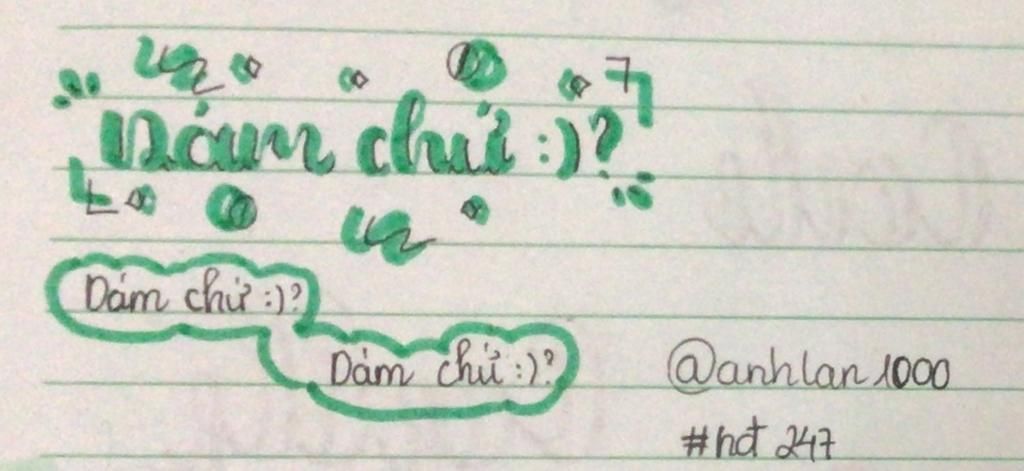 Dám chứ :)?
Dám chứ :)?
Dám chứ :)?
@anhlan1000
#hđt 247